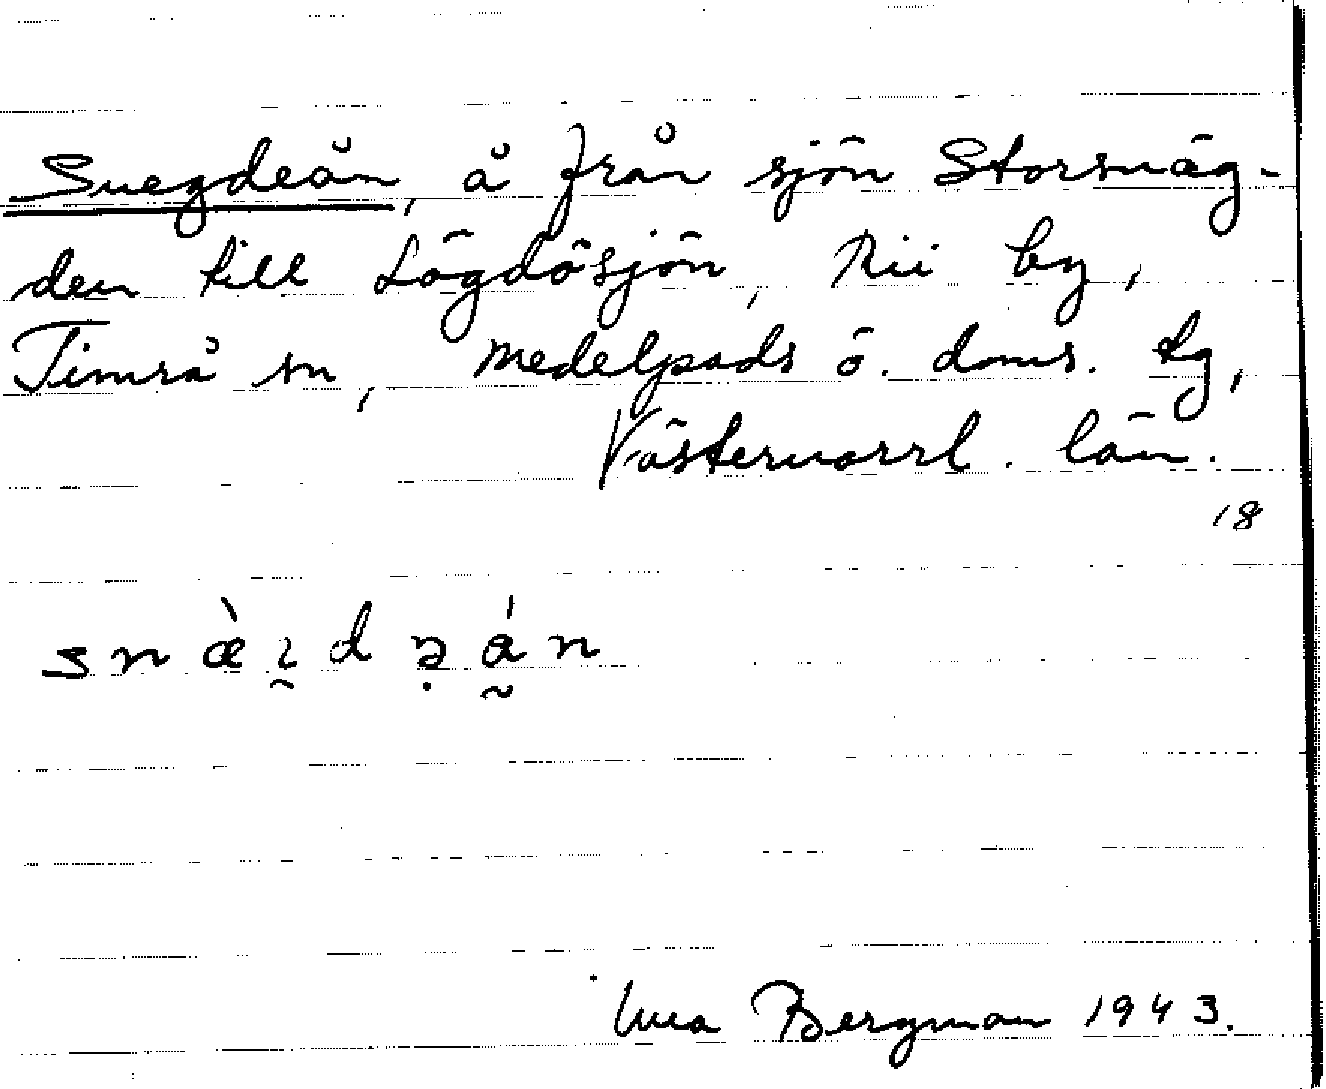 Snegdeån, å från sjön Storsnäg-
den till Lögdösjön, Rii by,
Timrå sn, Medelpads ö. doms. tg,
Västernorrl. län.
18
Bergman 1943.